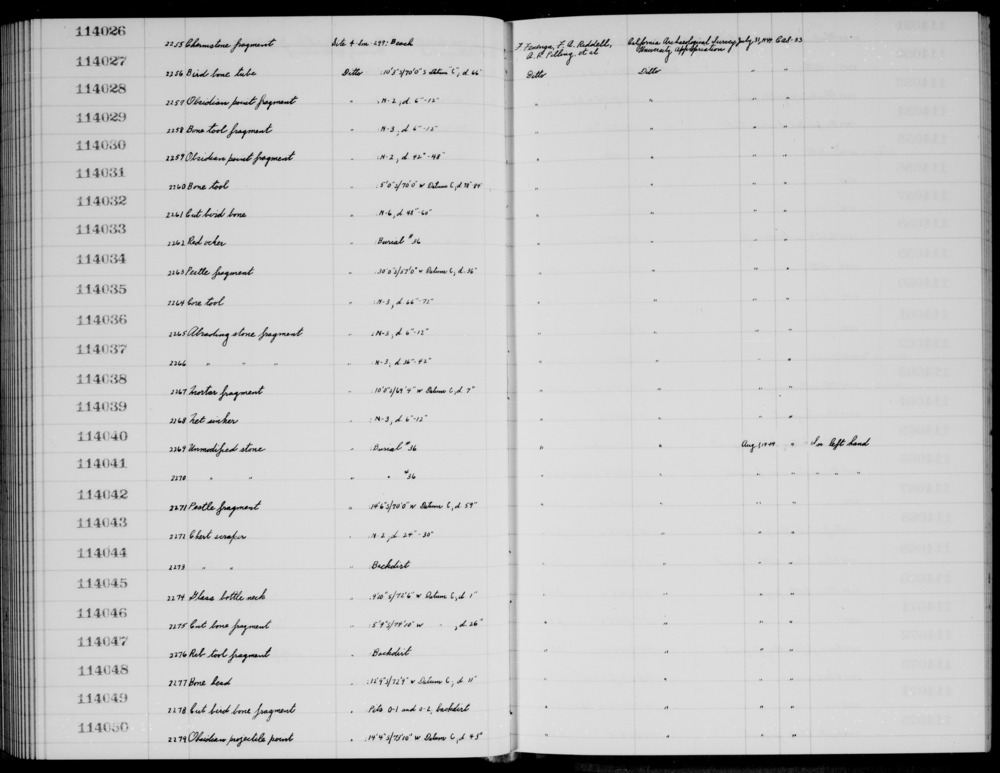 114026 2255 Charmstone fragment Site 4-Lan-297: Beach F. Fenenga, F. A. Riddell, California Archaeological Survey July 31, 1949 Cal-23
A. R. Pilling, et al University Appropriation
114027 2256 Bird bone tube Ditto :10'5"S/70'0" Datum C, d. 66" Ditto Ditto " "
114028 2257 Obsidian point fragment " :N-2, d. 6"-12" " " " "
114029 2258 Bone tool fragment " :N-3, d 6"-12" " " " "
114030 2259 Obsidian point fragment " :N-2, d. 42"-48" " " " "
114031 2260 Bone tool " :5'0"S/70'0" W Datum C, d. " " " "
114032 2261 Cut bird bone " :N-6, d 48"-60" " " " "
114033 2262 Red ocher " :Burial #36 " " " "
114034 2263 Pestle fragment " :30'0"S/57'0" W Datum C, d. 36" " " " "
114035 2264 Core tool " :N-3, d 66"-72" " " " "
114036 2265 Abrading stone fragment " :N-3, d 6"-12" " " " "
114037 2266 " " " " :N-3, d. 36"-42" " " " "
114038 2267 Mortar fragment " :10'0"S/69'9" W Datum C, d. 7" " " " "
114039 2268 Net sinker " :N-3, d 6"-12" " " " "
114040 2269 Unmodified stone " :Burial #36 " " Aug. 1, 1949 " In left hand
114041 2270 " " " " #36 " " " " " " "
114042 2271 Pestle fragment " :14'6"S/70'0" W Datum C, d. 59" " " " "
114043 2272 Chert scraper " :N-2, d. 24"-30" " " " "
114044 2273 " " " Backdirt " " " "
114045 2274 Glass bottle neck " :9'10"S/72'6" W Datum C, d. 1" " " " "
114046 2275 Cut bone fragment " :5'9"S/79'10" W " , d 26" " " " "
114047 2276 Rib tool fragment " Backdirt " " " "
114048 2277 Bone bead " :12'9"S/72'9" W Datum C, d. 11" " " " "
114049 2278 Cut bird bone fragment " :Pits O-1 and O-2, backdirt " " " "
114050 2279 Obsidian projectile point " :14'4"S/75'10" W Datum C, d 45" " " " "